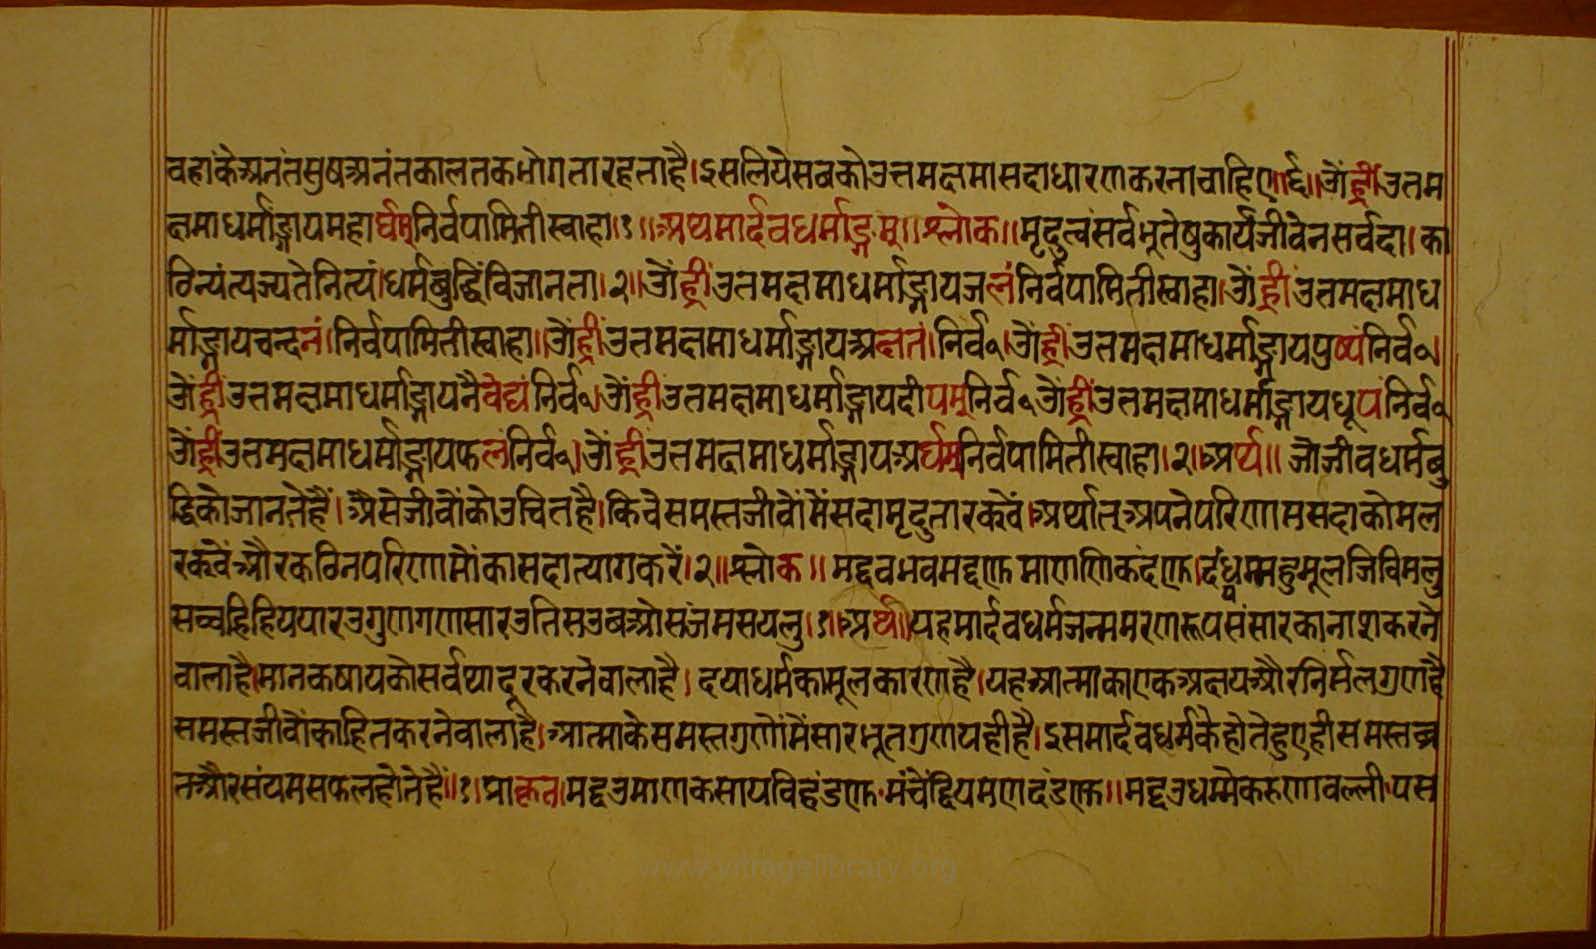 वहांकेअनंतसुषअनंतकालतकभोगतारहताहै।इसलियेसबकोउत्तमक्षमासदाधारणकरनाचाहिए॥६॥ओंह्रीँउतम
क्षमाधर्माङ्गायमहार्घमुनिर्वपामितीस्वाहा।१॥अथमार्दवधर्माङ्गम्॥श्लोक॥मृदुत्वंसर्वभूतेषुकार्यंजीवेनसर्वदा।का
ठिन्यंत्यज्यतेनित्यं।धर्मबुद्धिंविजानता।२॥ओंह्रींउतमक्षमाधर्माङ्गायजलंनिर्वपामितीस्वाहा।ओंह्रींउतमक्षमाध
र्माङ्गायचन्दनं।निर्वपामितीस्वाहा॥ओंह्रींउतमक्षमाधर्माङ्गायअक्षतं।निर्व०।ओंह्रींउतमक्षमाधर्माङ्गायपुष्पंनिर्व०।
ओंह्रींउतमक्षमाधर्माङ्गायनैवेद्यंनिर्व०।ओंह्रींउतमक्षमाधर्माङ्गायदीपम्निर्व०ओंह्रींउतमक्षमाधर्माङ्गायधूपंनिर्व०
ओंह्रींउतमक्षमाधर्माङ्गायफलंनिर्व०।ओंह्रींउतमक्षमाधर्माङ्गायअर्घम्निर्वपामितीस्वाहा।२।अर्थ॥जोजीवधर्मबु
द्धिकोजानतेहैं।अैसेजीवोंकोउचितहै।किवेसमस्तजीवोंमेंसदामृदुतारक्वें।अर्थात्अपनेपरिणामसदाकोमल
रक्वेंऔरकठिनपरिणामोंकासदात्यागकरें।२॥श्लोक॥मद्दवभवमद्दणुमाणणिकंदणु।दंधम्महुमूलजिविमलु
सव्वहिहियपारउगुणगणसारउतिसउबओसंजमसयलु।१।अर्थ॥यहमार्दवधर्मजन्ममरणरूपसंसारकानाशकरने
वालाहै।मानकषायकोसर्वथादूरकरनेवालाहै।दयाधर्मकामूलकारणहै।यहआत्माकाएकअक्षयऔरनिर्मलगुणहै
समस्तजीवोंकाहितकरनेवालाहै।आत्माकेसमस्तगुणोंमेंसारभूतगुणयहीहै।इसमार्दवधर्मकेहोतेहुएहीसमस्तव्र
तऔरसंयमसफलहोनेहैं॥१।प्राकृत।मद्दउमाणकसायविहंडणु।मंचेंद्दियमणदंडणु॥मद्दउधम्मेकरुणावल्ली।पस
www.vitragelibrary.org